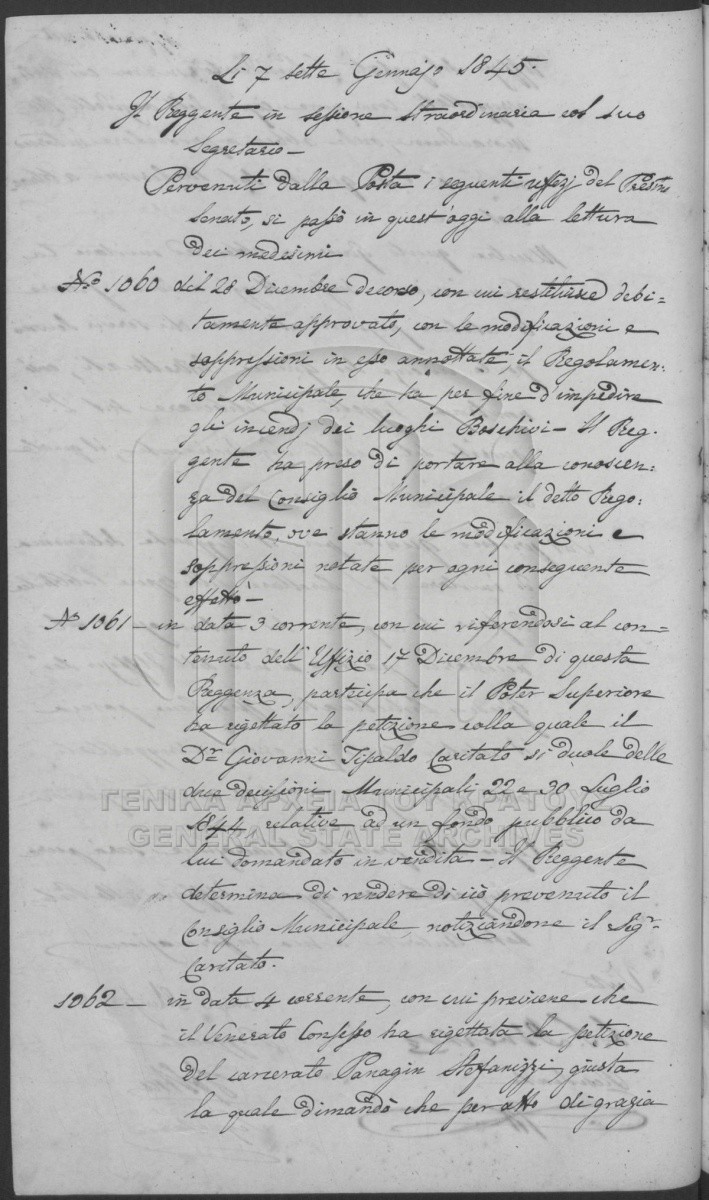 Li 7 sette Gennajo 1845.
Il Reggente in sessione straordinaria col suo
Segretario –
Pervenuti dalla Posta i seguenti uffizj del Prestmo
Senato, si passò in quest'oggi alla lettura
dei medesimi
No 1060 del 28 Dicembre decorso, con cui restituisce debi=
tamente approvato, con le modificazioni e
soppressioni in esso annottate il Regolamen=
to Municipale, che ha per fine d'impedire
gli incendj dei luoghi Boschivi – Il Reg=
gente ha preso di portare alla conoscien=
za del Consiglio Municipale il detto Rego=
lamento, ove stanno le modificazioni e
soppressioni notate per ogni conseguente
effetto –
No 1061 – in data 3 corrente, con cui riferendosi al con=
tenuto dell'Uffizio 17 Dicembre di questa
Reggenza, participa che il Poter Superiore
ha rigettato la petizione colla quale il
Dr Giovanni Tipaldo Caritato si duole delle
due decisioni Municipali 22 e 30 Luglio
ΓΕΝΙΚΑ ΑΡΧΕΙΑ ΤΟΥ ΚΡΑΤΟΥΣ
1844 relative ad un fondo pubblico da
GENERAL STATE ARCHIVES
lui domandato in vendita – Il Reggente
determina di rendere di ciò prevenuto il
Consiglio Municipale, notiziandone il Sigr
Caritato.
1062 – in data 4 corrente, con cui previene che
il Venerato Consesso ha rigettata la petizione
del carcerato Panagin Stefanizzi, giusta
la quale dimandò che per atto di grazia